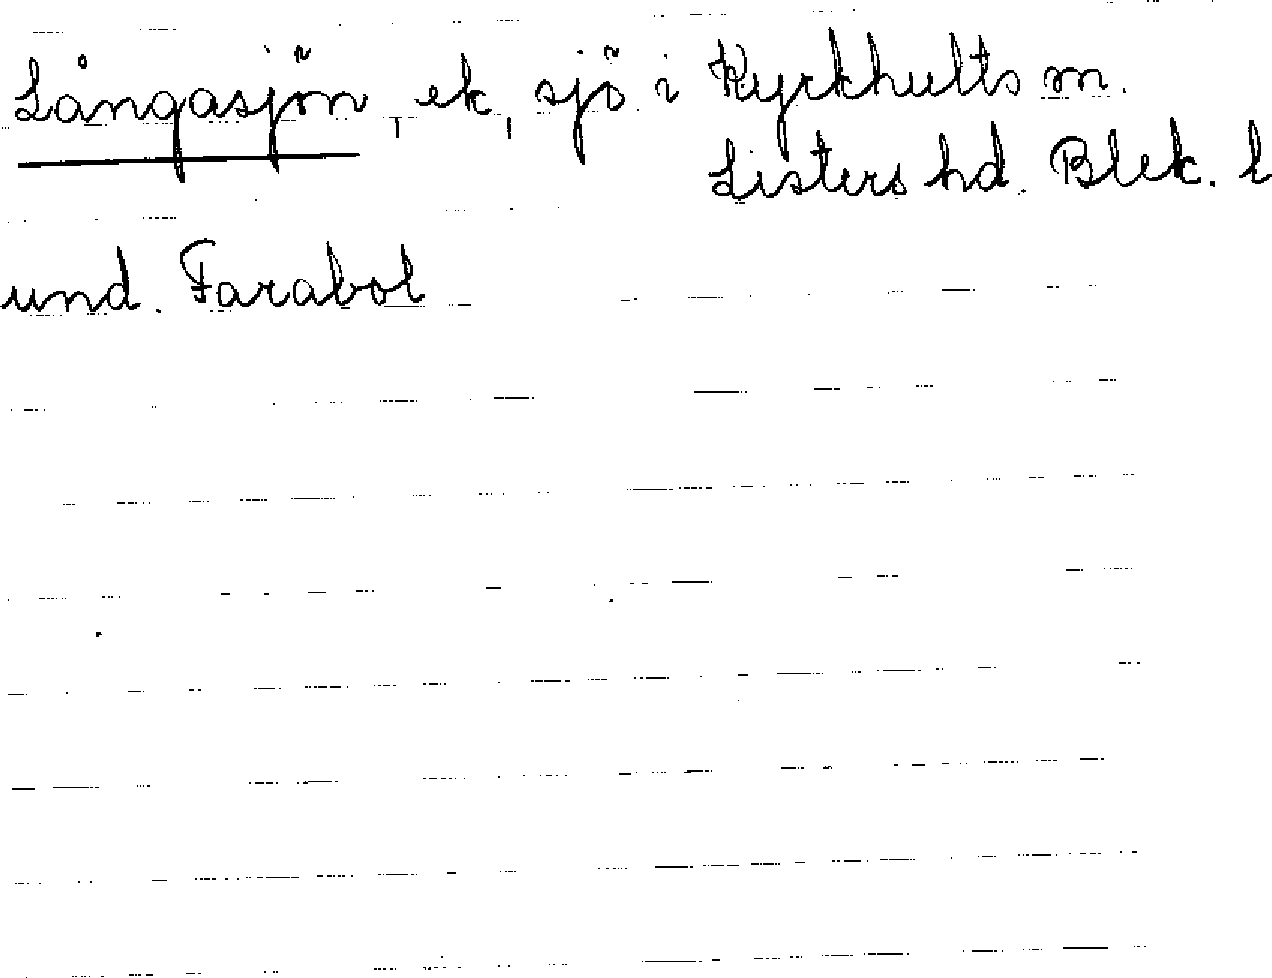 Långasjön, ek, sjö i Kyrkhults sn.
Listers hd. Blek. l
und. Farabol